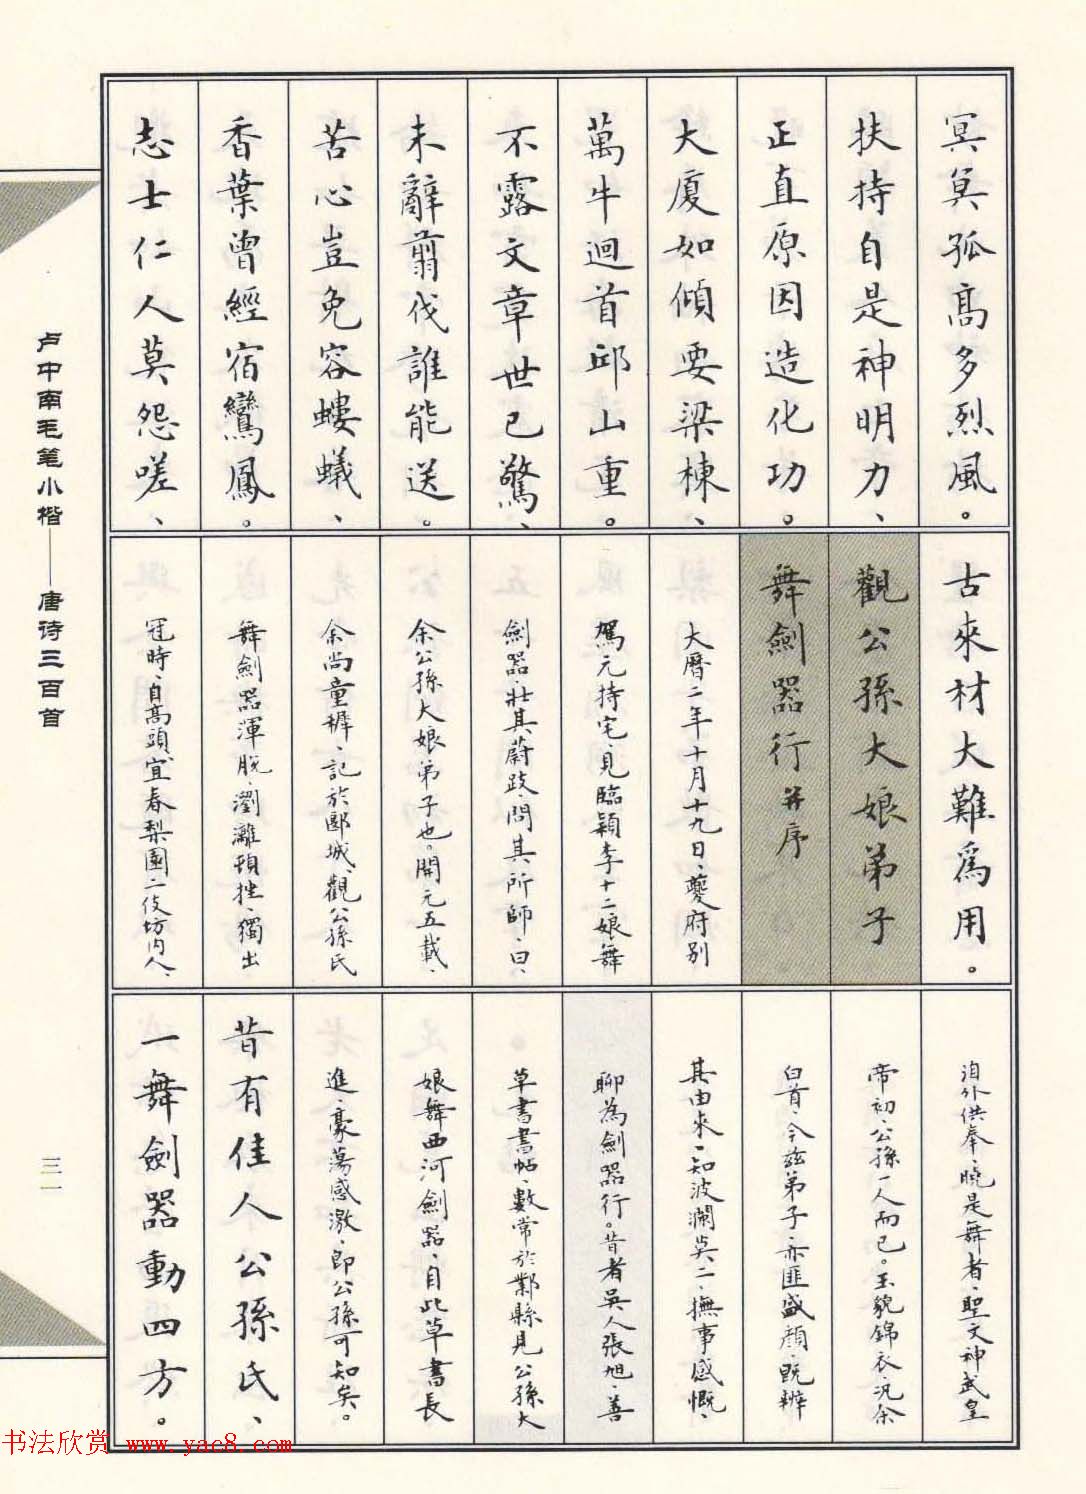 冥冥孤高多烈風。
扶持自是神明力、
正直原因造化功。
大廈如傾要梁棟、
萬牛迴首邱山重。
不露文章世已驚、
未辭翦伐誰能送。
苦心豈免容螻蟻、
香葉曾經宿鸞鳳。
志士仁人莫怨嗟、
古來材大難為用。
觀公孫大娘弟子
舞劍器行并序
大曆二年十月十九日、夔府別
駕元持宅、見臨潁李十二娘舞
劍器、壯其蔚跂、問其所師、曰、
余公孫大娘弟子也。開元五載、
余尚童穉、記於郾城、觀公孫氏
舞劍器渾脫、瀏灕頓挫、獨出
冠時、自高頭宜春梨園二伎坊內人、
洎外供奉、曉是舞者、聖文神武皇
帝初、公孫一人而已。玉貌錦衣、況余
白首、今茲弟子、亦匪盛顏、既辨
其由來、知波瀾莫二、撫事感慨、
聊為劍器行。昔者吳人張旭、善
草書書帖、數常於鄴縣見公孫大
娘舞西河劍器、自此草書長
進、豪蕩感激、即公孫可知矣。
昔有佳人公孫氏、
一舞劍器動四方。
卢中南毛笔小楷——唐诗三百首
三一
书法欣赏 www.yac8.com